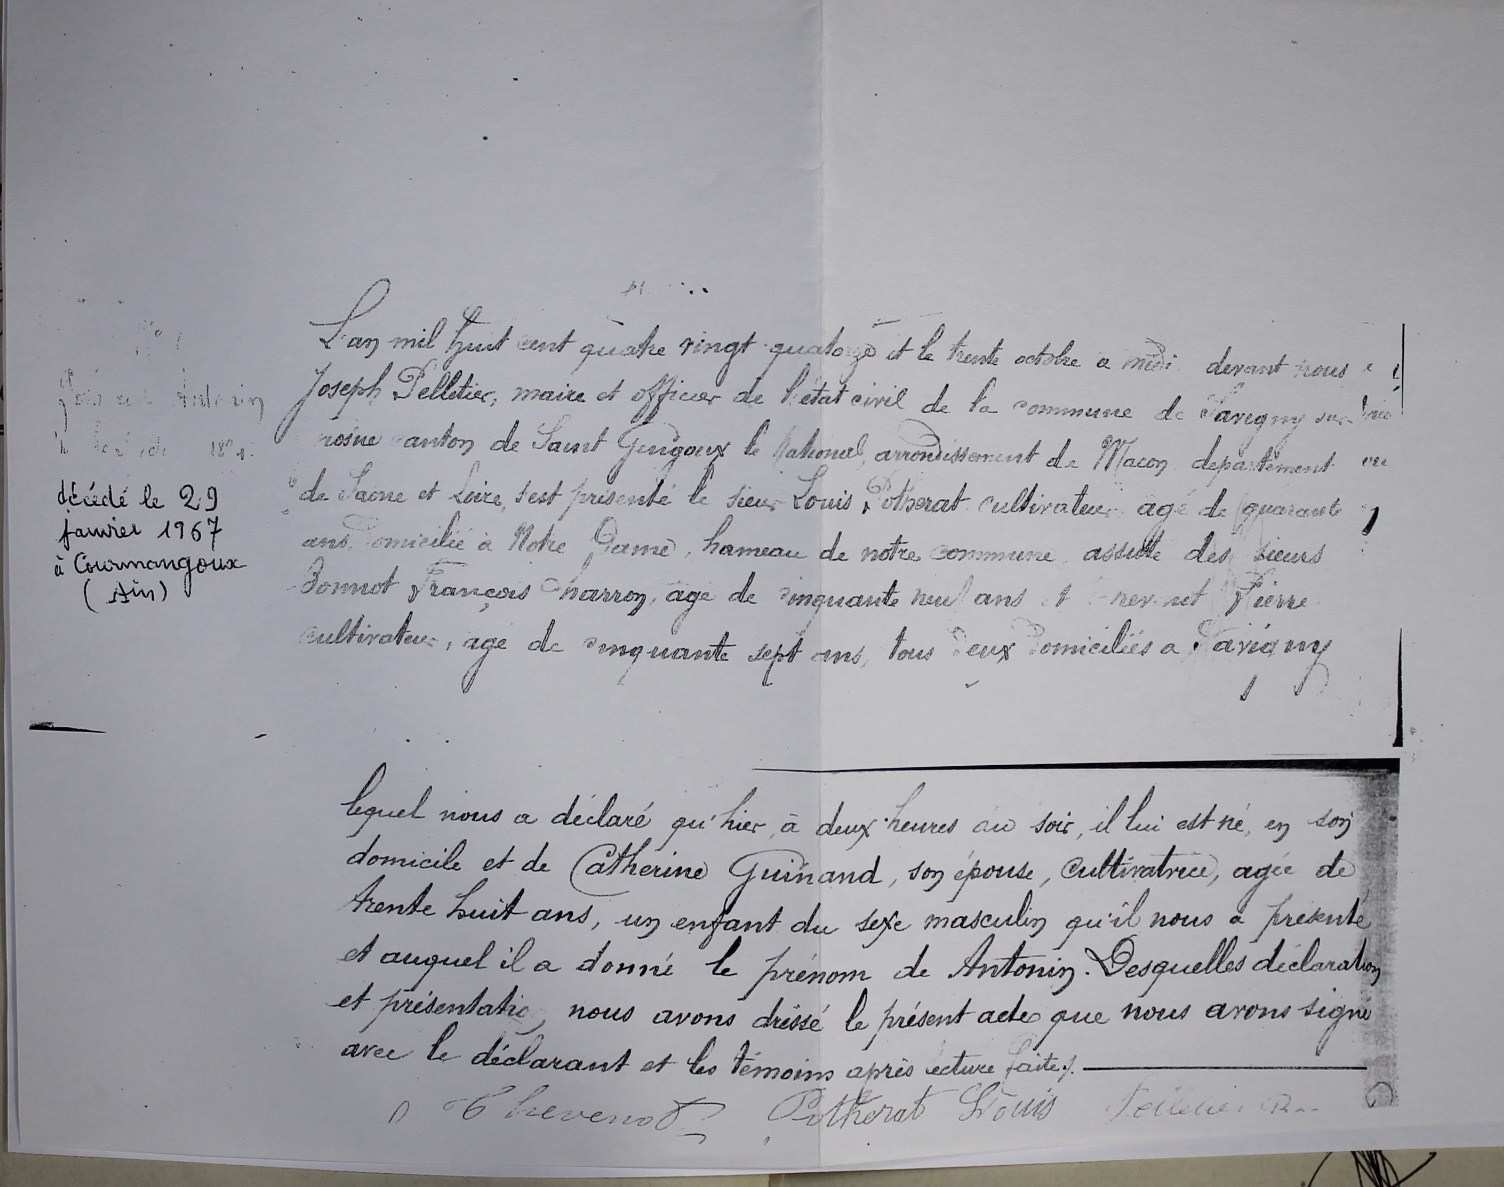 Antonin
décédé le 29
janvier 1967
à Courmangoux
(Ain)
L'an mil huit cent quatre vingt quatorze et le trente octobre a midi devant nous
Joseph Pelletier, maire et officier de l'état civil de la commune de Savigny sur
Grosne canton de Saint Gengoux le National, arrondissement de Macon département
de Saone et Loire, s'est présenté le sieur Louis Potherat cultivateur agé de quarante
ans domicilié à Notre Dame, hameau de notre commune assisté des sieurs
Bonnot François Charron, agé de cinquante neuf ans et Thevenot Pierre
cultivateur, agé de cinquante sept ans, tous deux domiciliés a Savigny
lequel nous a déclaré qu'hier, à deux heures du soir, il lui est né, en son
domicile et de Catherine Guinand, son épouse, cultivatrice, agée de
trente huit ans, un enfant du sexe masculin qu'il nous a présenté
et auquel il a donné le prénom de Antonin. Desquelles déclaration
et présentatio, nous avons dressé le présent acte que nous avons signé
avec le déclarant et les témoins après lecture faite.
Thevenot Potherat Louis Pelletier